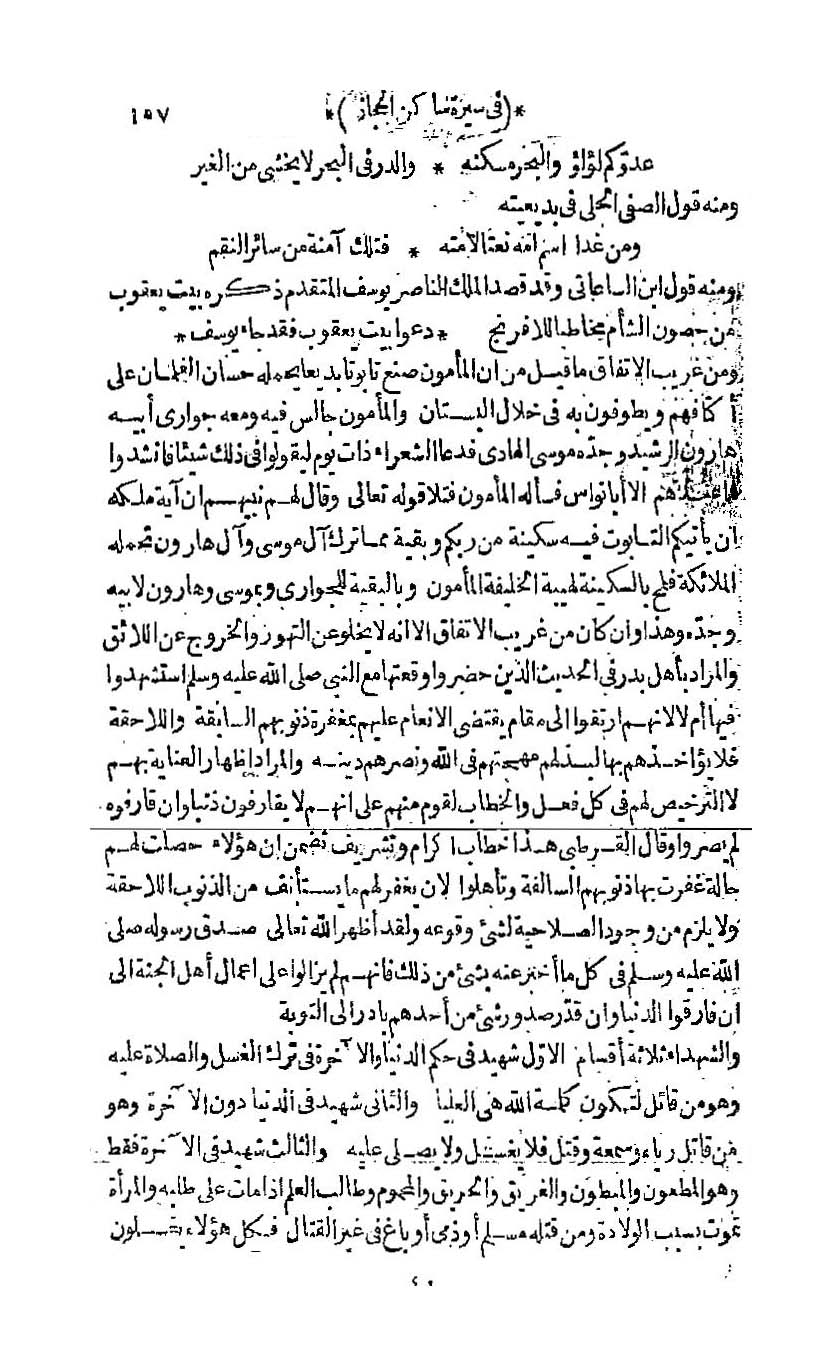 *(في سيرة ساكن الحجاز)* ١٥٧
عدوكم لؤلؤ والبحر مسكنه * والدر في البحر لا يخشى من الغير
ومنه قول الصفي الحلي في بديعيته
ومن غدا اسم امه نعتا لامته * فتلك آمنة من سائر النقم
ومنه قول ابن الساعاتي وقد قصد الملك الناصر يوسف المتقدم ذكره بيت يعقوب
من حصون الشأم مخاطبا للافرنج * دعوا بيت يعقوب فقد جاء يوسف *
ومن غريب الاتفاق ماقيل من ان المأمون صنع تابوتا بديعا يحمله حسان الغلمان على
أكتافهم ويطوفون به في خلال البستان والمأمون جالس فيه ومعه جوارى أبيه
هارون الرشيد وجده موسى الهادى فدعا الشعراء ذات يوم ليقولوا في ذلك شيئا فانشدوا
الا أبا نواس فسأله المأمون فتلا قوله تعالى وقال لهم نبيهم ان آية ملكه
ان يأتيكم التابوت فيه سكينة من ربكم وبقية مما ترك آل موسى وآل هارون تحمله
الملائكة فلمح بالسكينة لهيبة الخليفة المأمون وبالبقية للجوارى وبموسى وهارون لابيه
وجده وهذا وان كان من غريب الاتفاق الا انه لا يخلو عن التهور والخروج عن اللائق
والمراد بأهل بدر في الحديث الذين حضروا وقعتها مع النبي صلى الله عليه وسلم استشهدوا
فيها أم لا لانهم ارتقوا الى مقام يقتضى الانعام عليهم بمغفرة ذنوبهم السابقة واللاحقة
فلا يؤاخذهم بها لبذلهم مهجتهم في الله ونصرهم دينه والمراد اظهار العناية بهم
لا الترخيص لهم في كل فعل والخطاب لقوم منهم على انهم لا يقارفون ذنبا وان قارفوه
لم يصروا وقال القرطبى هذا خطاب اكرام وتشريف تضمن ان هؤلاء حصلت لهم
حالة غفرت بها ذنوبهم السالفة وتأهلوا لان يغفر لهم ما يستأنف من الذنوب اللاحقة
ولا يلزم من وجود الصلاحية لشئ وقوعه ولقد أظهر الله تعالى صدق رسوله صلى
الله عليه وسلم في كل ما أخبر عنه بشئ من ذلك فانهم لم يزالوا على اعمال أهل الجنة الى
ان فارقوا الدنيا وان قدر صدور شئ من أحدهم بادر الى التوبة
والشهداء ثلاثة أقسام الاول شهيد في حكم الدنيا والآخرة في ترك الغسل والصلاة عليه
وهو من قاتل لتكون كلمة الله هى العليا والثانى شهيد في الدنيا دون الآخرة وهو
من قاتل رياء وسمعة وقتل فلا يغسل ولا يصلى عليه والثالث شهيد في الآخرة فقط
وهو المطعون والمبطون والغريق والحريق والمحموم وطالب العلم اذا مات على طلبه والمرأة
تموت بسبب الولادة ومن قتله مسلم أو ذمى أو باغ في غير القتال فكل هؤلاء يغسلون